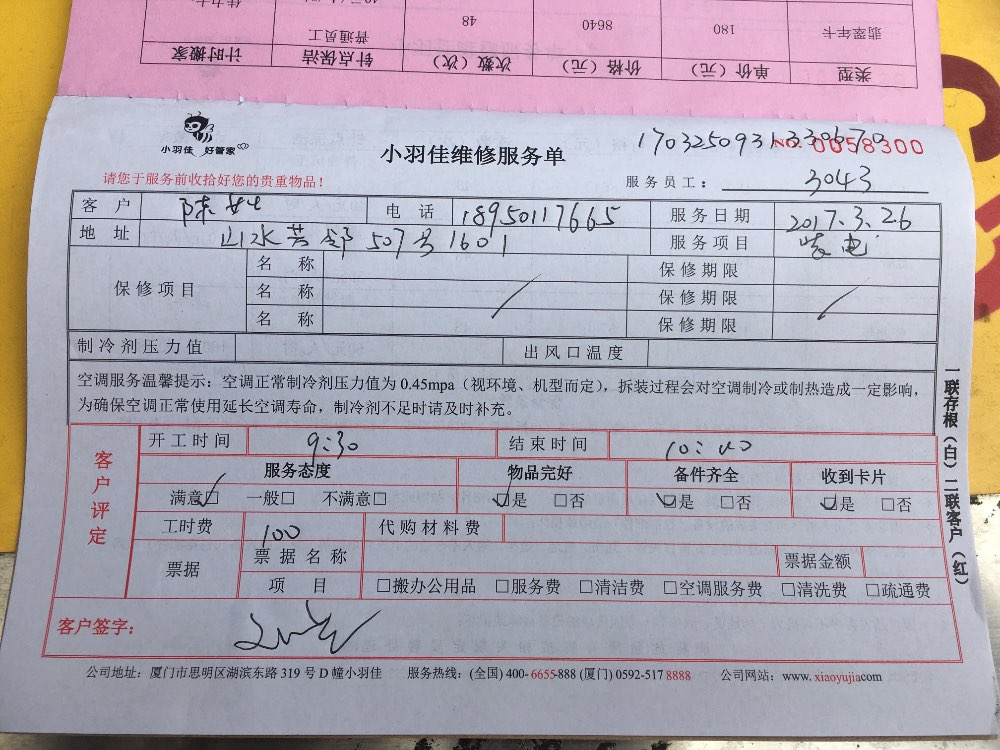 类型 单价（元） 价格（元） 次数（次） 针点保洁 计时搬家
翡翠年卡 180 8640 48 普通员工
小羽佳 好管家
小羽佳维修服务单
1703250931339670
NO. 0058300
请您于服务前收拾好您的贵重物品！
服务员工： 3043
客 户 陈 电 话 18950117665 服务日期 2017.3.26
地 址 山水芳邻507号1601 服务项目 装电
保修项目 名 称 保修期限
名 称 保修期限
名 称 保修期限
制冷剂压力值 出风口温度
空调服务温馨提示：空调正常制冷剂压力值为 0.45mpa（视环境、机型而定），拆装过程会对空调制冷或制热造成一定影响，
为确保空调正常使用延长空调寿命，制冷剂不足时请及时补充。
客户评定
开工时间 9:30 结束时间 10:40
服务态度 物品完好 备件齐全 收到卡片
满意☑ 一般□ 不满意□ ☑是 □否 ☑是 □否 ☑是 □否
工时费 100 代购材料费
票据 票据名称 票据金额
项 目 □搬办公用品 □服务费 □清洁费 □空调服务费 □清洗费 □疏通费
客户签字：
公司地址：厦门市思明区湖滨东路 319 号 D 幢小羽佳 服务热线：(全国) 400-6655-888 (厦门) 0592-517 8888 公司网站：www.xiaoyujia.com
一联存根（白）二联客户（红）